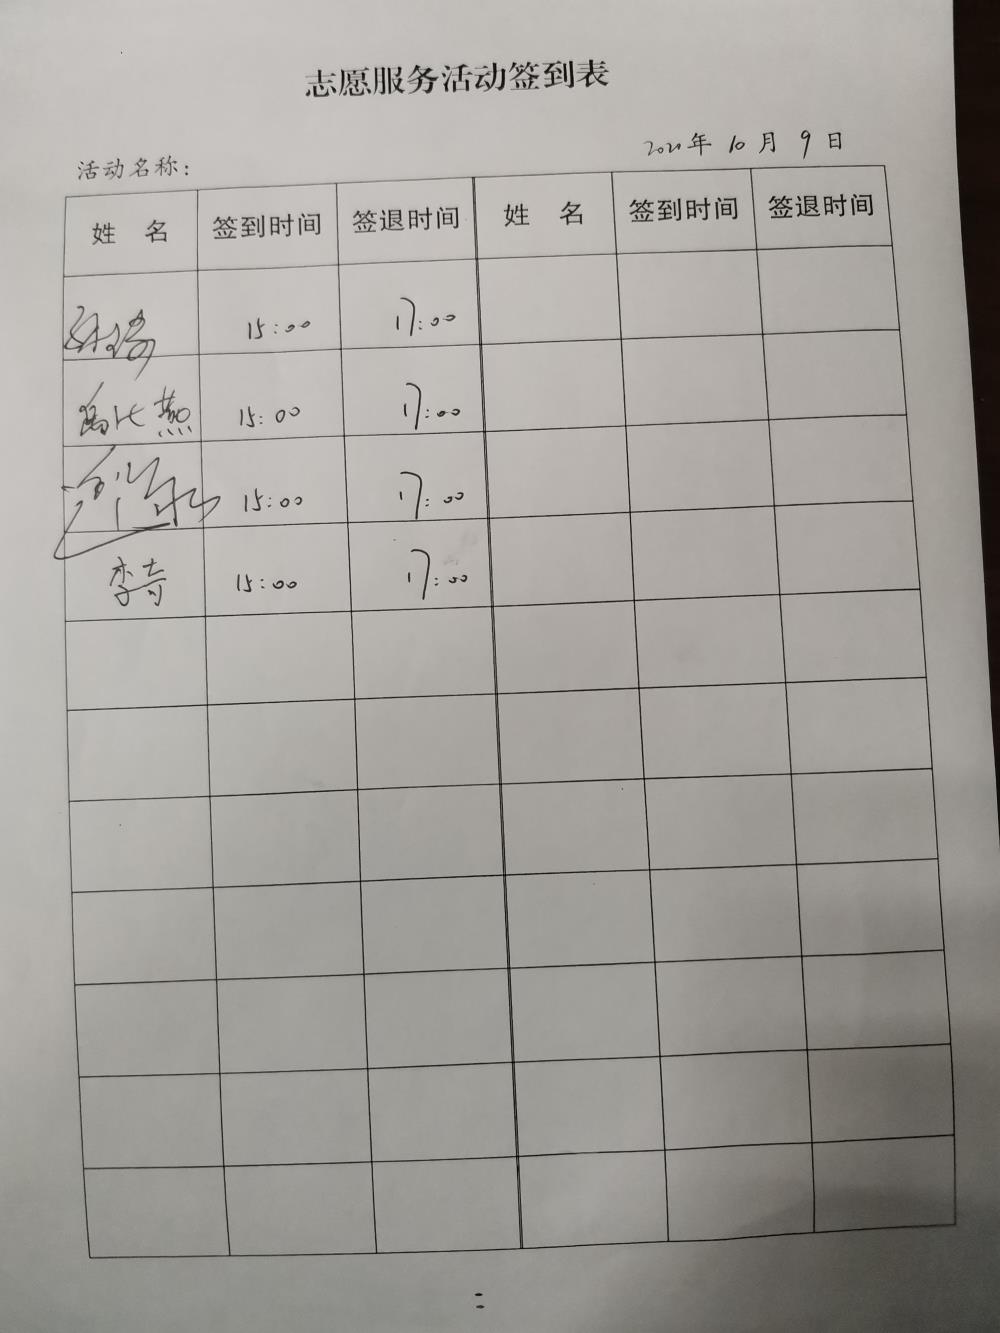 志愿服务活动签到表
活动名称:
年 10 月 9 日
姓 名 签到时间 签退时间 姓 名 签到时间 签退时间
15:00 17:00
15:00 17:00
15:00 17:00
李奇 15:00 17:00